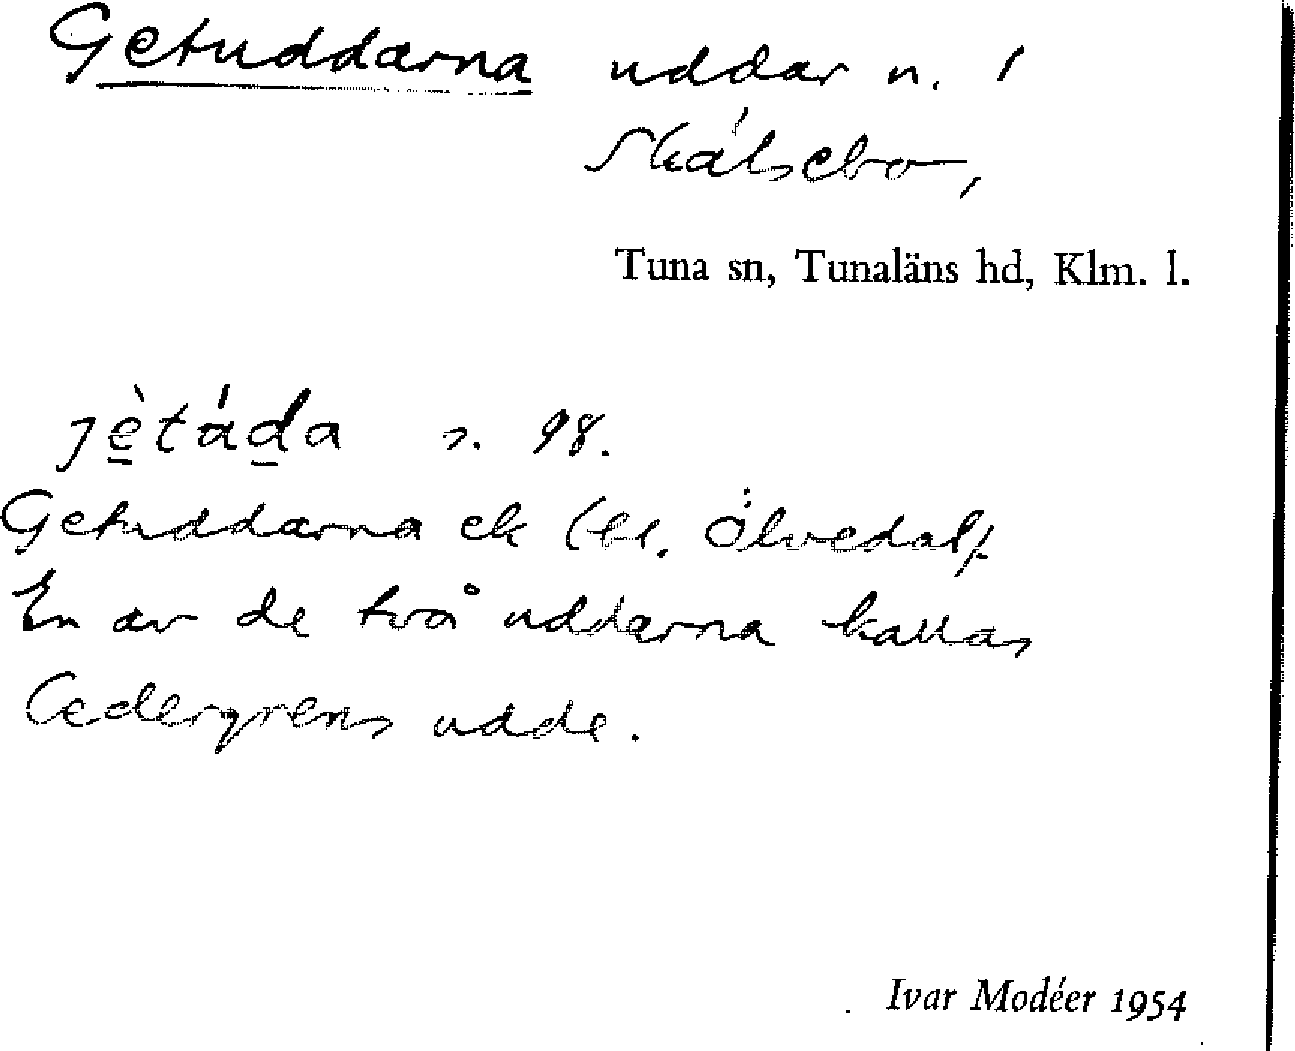 Getuddarna uddar n. i
Skälsebo,
Tuna sn, Tunaläns hd, Klm. l.
jè̱táḏa s. 98.
Getuddarna ek (bl. Ölvedal).
En av de två uddarna kallas
Cedergrens udde.
Ivar Modéer 1954